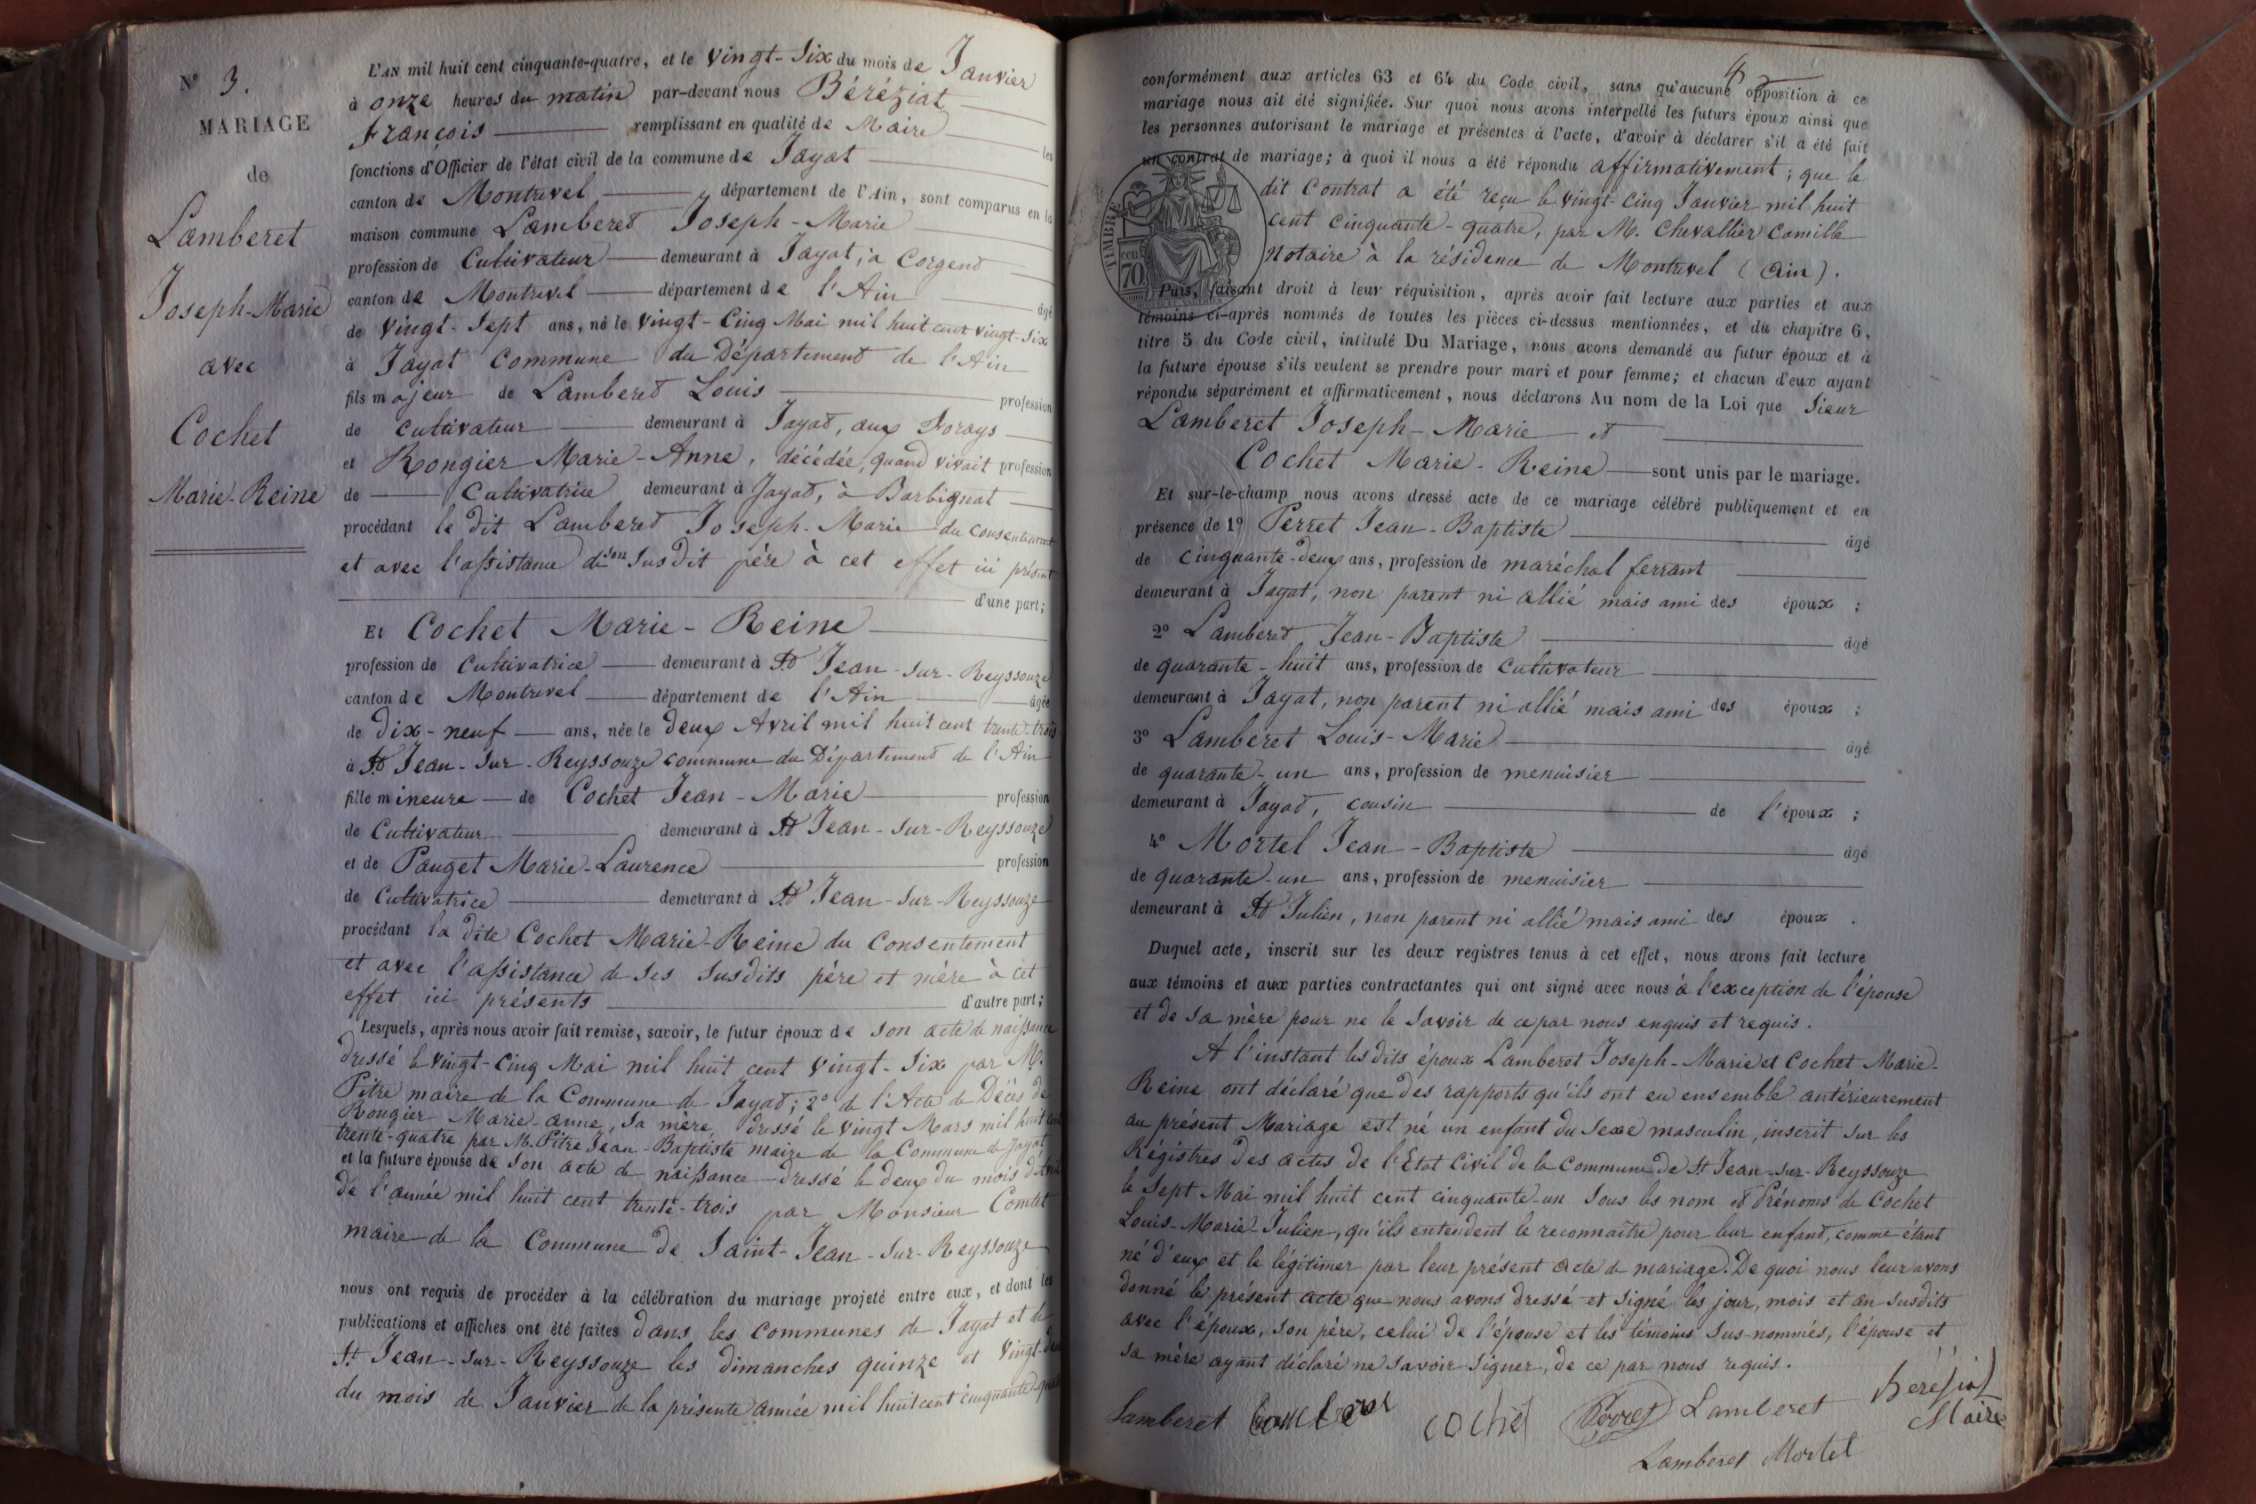 N° 3.
MARIAGE
de
Lamberet
Joseph-Marie
avec
Cochet
Marie-Reine
L'AN mil huit cent cinquante-quatre, et le vingt-six du mois de Janvier
à onze heures du matin par-devant nous Béréziat
françois remplissant en qualité de Maire les
fonctions d'Officier de l'état civil de la commune de Jayat
canton de Montrevel département de l'Ain, sont comparus en la
maison commune Lamberet Joseph-Marie
profession de Cultivateur demeurant à Jayat, à Corgent
canton de Montrevel département de l'Ain âgé
de vingt-sept ans, né le vingt-cinq Mai mil huit cent vingt-six
à Jayat commune du Département de l'Ain
fils majeur de Lamberet Louis profession
de cultivateur demeurant à Jayat, aux
et Rongier Marie-Anne, décédée, quand vivait profession
de Cultivatrice demeurant à Jayat, à Barbignat
procédant le dit Lamberet Joseph-Marie du consentement
et avec l'assistance de son susdit père à cet effet ici présent
d'une part;
Et Cochet Marie-Reine
profession de cultivatrice demeurant à St Jean-sur-Reyssouze
canton de Montrevel département de l'Ain âgée
de dix-neuf ans, née le deux Avril mil huit cent trente-trois
à St Jean-sur-Reyssouze commune du Département de l'Ain
fille mineure de Cochet Jean-Marie profession
de Cultivateur demeurant à St Jean-sur-Reyssouze
et de Pauget Marie-Laurence profession
de Cultivatrice demeurant à St Jean-sur-Reyssouze
procédant la dite Cochet Marie-Reine du consentement
et avec l'assistance de ses susdits père et mère à cet
effet ici présents d'autre part;
Lesquels, après nous avoir fait remise, savoir, le futur époux de son acte de naissance
dressé le vingt-cinq Mai mil huit cent vingt-six par M.
Pitre maire de la Commune de Jayat; 2° de l'Acte de Décès de
Rongier Marie-anne, sa mère, dressé le vingt Mars mil huit cent
trente-quatre par M. Pitre Jean-Baptiste maire de la Commune de Jayat
et la future épouse de son acte de naissance dressé le deux du mois d'Avril
de l'année mil huit cent trente-trois par Monsieur Comtet
maire de la Commune de Saint-Jean-sur-Reyssouze
nous ont requis de procéder à la célébration du mariage projeté entre eux, et dont les
publications et affiches ont été faites dans les communes de Jayat et de
St Jean-sur-Reyssouze les dimanches quinze et vingt-deux
du mois de Janvier de la présente année mil huit cent cinquante-quatre
4
conformément aux articles 63 et 64 du Code civil, sans qu'aucune opposition à ce
mariage nous ait été signifiée. Sur quoi nous avons interpellé les futurs époux ainsi que
les personnes autorisant le mariage et présentes à l'acte, d'avoir à déclarer s'il a été fait
un contrat de mariage; à quoi il nous a été répondu affirmativement; que le
dit Contrat a été reçu le vingt-cinq Janvier mil huit
cent cinquante-quatre, par M. Chevallier Camille
Notaire à la résidence de Montrevel (Ain).
TIMBRE
70
Puis, faisant droit à leur réquisition, après avoir fait lecture aux parties et aux
témoins ci-après nommés de toutes les pièces ci-dessus mentionnées, et du chapitre 6,
titre 5 du Code civil, intitulé Du Mariage, nous avons demandé au futur époux et à
la future épouse s'ils veulent se prendre pour mari et pour femme; et chacun d'eux ayant
répondu séparément et affirmativement, nous déclarons Au nom de la Loi que sieur
Lamberet Joseph-Marie et
Cochet Marie-Reine sont unis par le mariage.
Et sur-le-champ nous avons dressé acte de ce mariage célébré publiquement et en
présence de 1° Perret Jean-Baptiste âgé
de cinquante-deux ans, profession de maréchal ferrant
demeurant à Jayat, non parent ni allié mais ami des époux ;
2° Lamberet, Jean-Baptiste âgé
de quarante-huit ans, profession de cultivateur
demeurant à Jayat, non parent ni allié mais ami des époux ;
3° Lamberet Louis-Marie âgé
de quarante-un ans, profession de menuisier
demeurant à Jayat, cousin de l'époux ;
4° Mortel Jean-Baptiste âgé
de quarante-un ans, profession de menuisier
demeurant à St Julien, non parent ni allié mais ami des époux .
Duquel acte, inscrit sur les deux registres tenus à cet effet, nous avons fait lecture
aux témoins et aux parties contractantes qui ont signé avec nous à l'exception de l'épouse
et de sa mère pour ne le savoir de ce par nous enquis et requis.
A l'instant les dits époux Lamberet Joseph-Marie et Cochet Marie-
Reine ont déclaré que des rapports qu'ils ont eu ensemble antérieurement
au présent Mariage est né un enfant du sexe masculin, inscrit sur les
Régistres des actes de l'Etat Civil de la commune de St Jean-sur-Reyssouze
le sept Mai mil huit cent cinquante-un sous les nom et Prénoms de Cochet
Louis-Marie-Julien, qu'ils entendent le reconnaître pour leur enfant, comme étant
né d'eux et le légitimer par leur présent acte de mariage. De quoi nous leur avons
donné le présent acte que nous avons dressé et signé les jour, mois et an susdits
avec l'époux, son père, celui de l'épouse et les témoins sus-nommés, l'épouse et
sa mère ayant déclaré ne savoir signer, de ce par nous requis.
Lamberet Lamberet cochet Perret Lamberet Béréziat
Maire
Lamberet Mortel